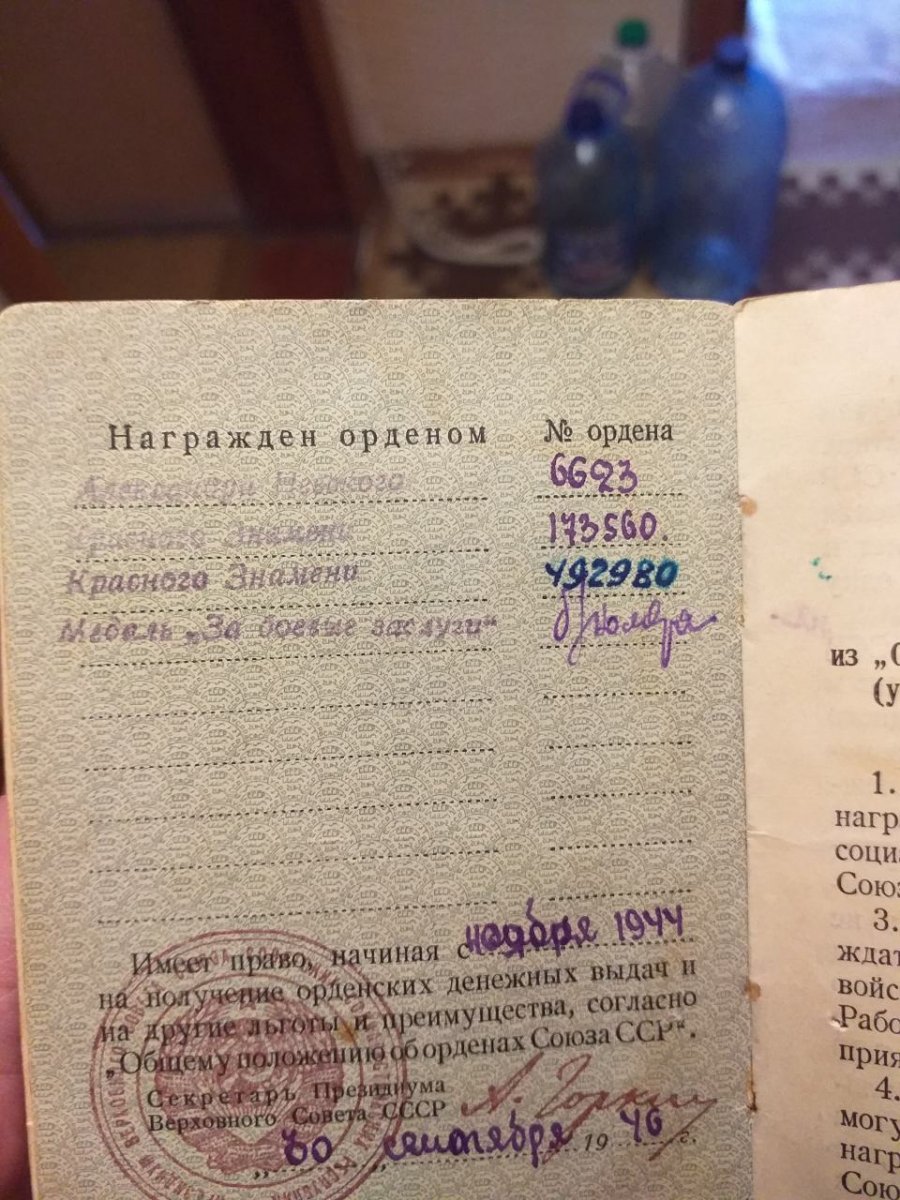 Награжден орденом № ордена
Александра Невского 6623
Красного Знамени 173560.
Красного Знамени 492980
Медаль „За боевые заслуги“
Имеет право, начиная с ноября 1944
на получение орденских денежных выдач и
на другие льготы и преимущества, согласно
„Общему положению об орденах Союза ССР“.
Секретарь Президиума
Верховного Совета СССР А. Горкин
„30 „ сентября 19 46 г.
из „О
(у
1.
нагр
социа
Союз
3.
ждат
войс
Рабо
прия
4.
могу
нагр
Сою